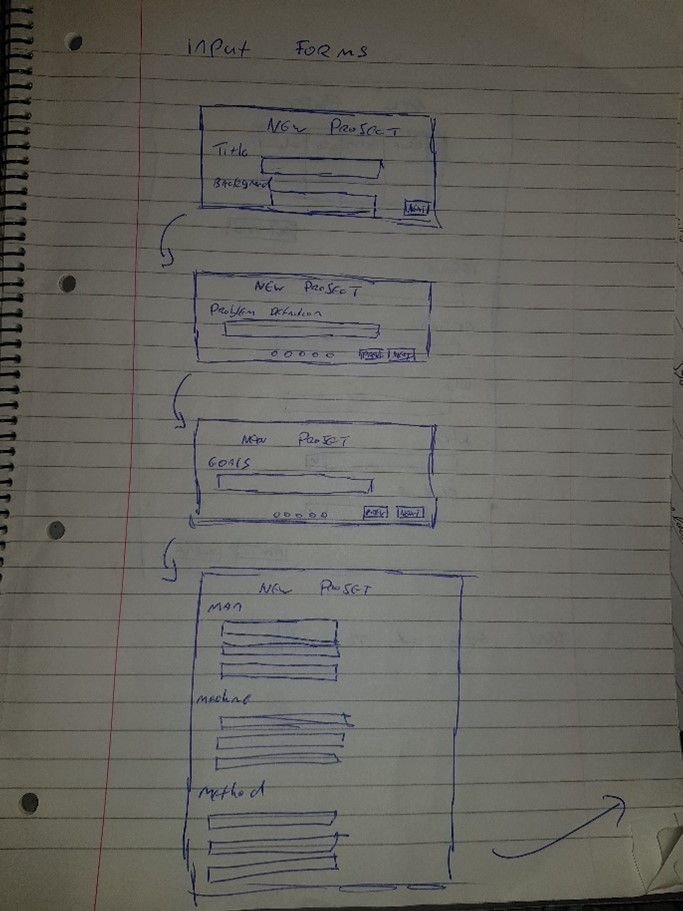 Input Forms
New Project
Title
Background
Next
New Project
Problem Definition
Prev Next
New Project
Goals
Prev Next
New Project
Man
Machine
Method